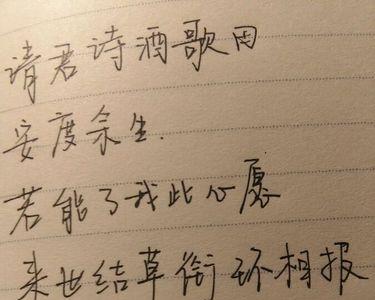 请君诗酒歌田
安度余生.
若能了我此心愿
来世结草衔环相报